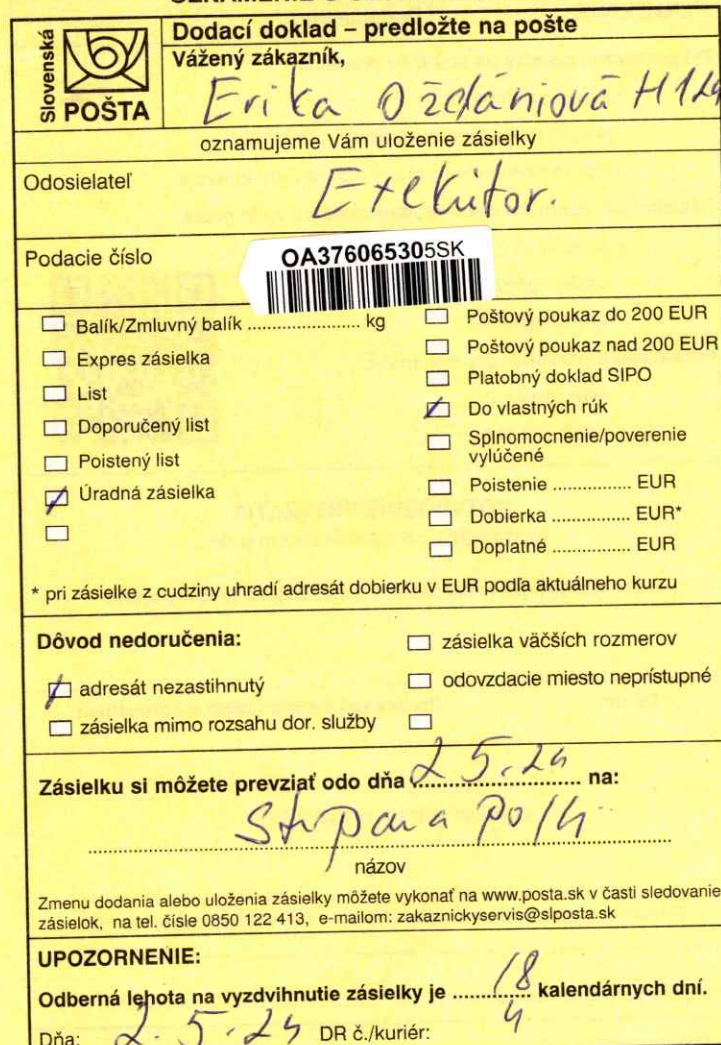 Slovenská
POŠTA
Dodací doklad – predložte na pošte
Vážený zákazník,
Erika Oždániová
oznamujeme Vám uloženie zásielky
Odosielateľ
Exekútor.
Podacie číslo
OA376065305SK
Balík/Zmluvný balík ...................... kg
Expres zásielka
List
Doporučený list
Poistený list
Úradná zásielka
Poštový poukaz do 200 EUR
Poštový poukaz nad 200 EUR
Platobný doklad SIPO
Do vlastných rúk
Splnomocnenie/poverenie
vylúčené
Poistenie ............... EUR
Dobierka ............... EUR*
Doplatné ............... EUR
* pri zásielke z cudziny uhradí adresát dobierku v EUR podľa aktuálneho kurzu
Dôvod nedoručenia:
adresát nezastihnutý
zásielka mimo rozsahu dor. služby
zásielka väčších rozmerov
odovzdacie miesto neprístupné
Zásielku si môžete prevziať odo dňa 2.5.24 na:
názov
Zmenu dodania alebo uloženia zásielky môžete vykonať na www.posta.sk v časti sledovanie
zásielok, na tel. čísle 0850 122 413, e-mailom: zakaznickyservis@slposta.sk
UPOZORNENIE:
Odberná lehota na vyzdvihnutie zásielky je 18 kalendárnych dní.
Dňa: 2.5.24 DR č./kuriér: 4